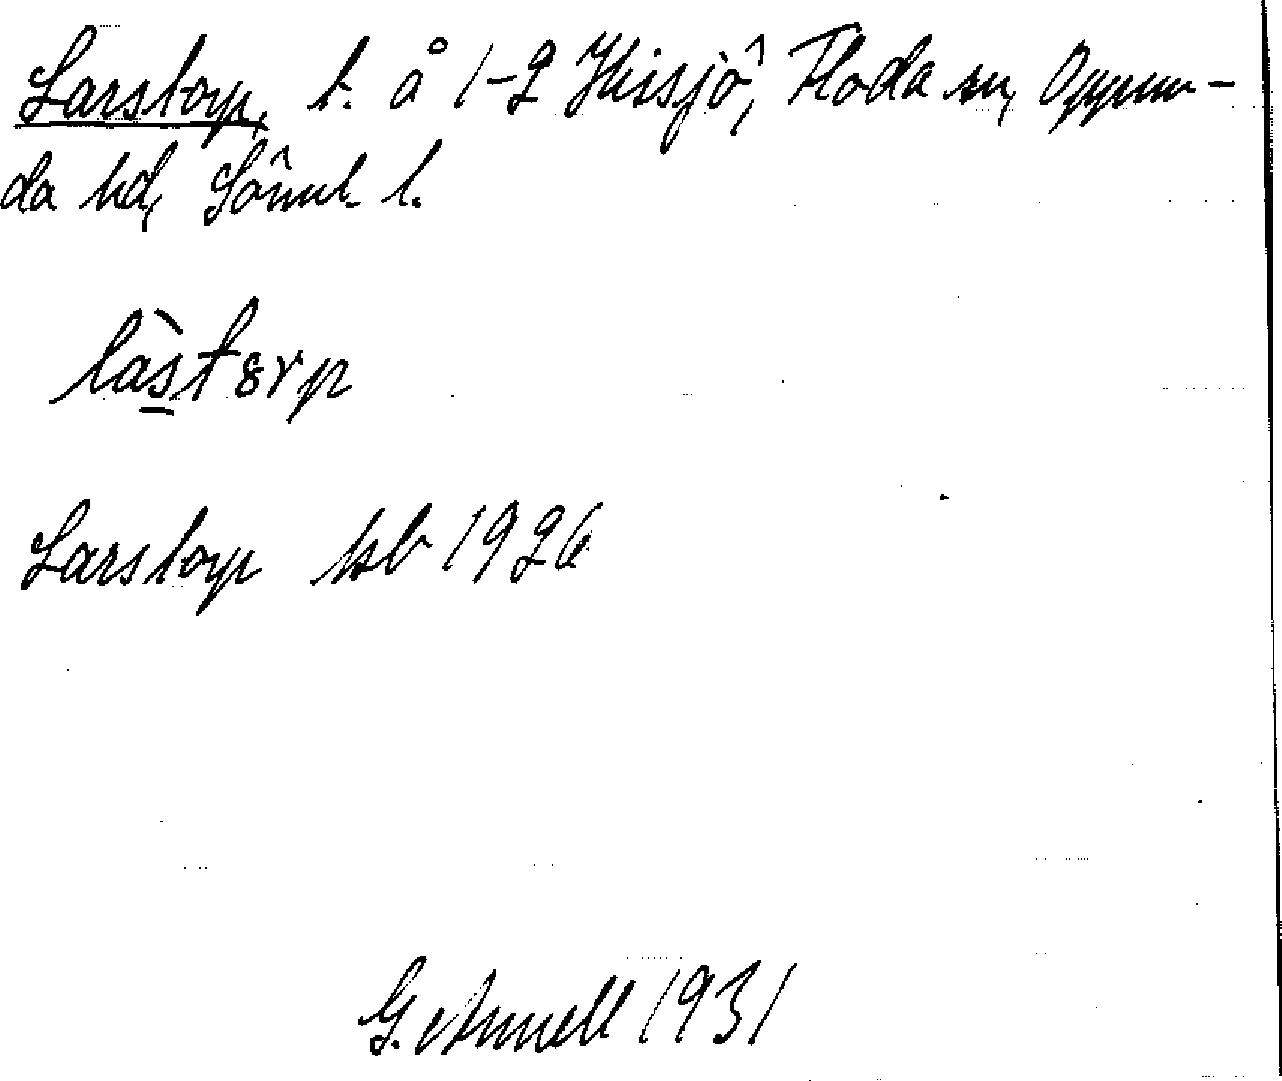 Larstorp, t. å 1-2 Hissjö, Floda sn, Oppun-
da hd, Söml l.
làstsrp
Larstorp kb 1926
G. Annell 1931